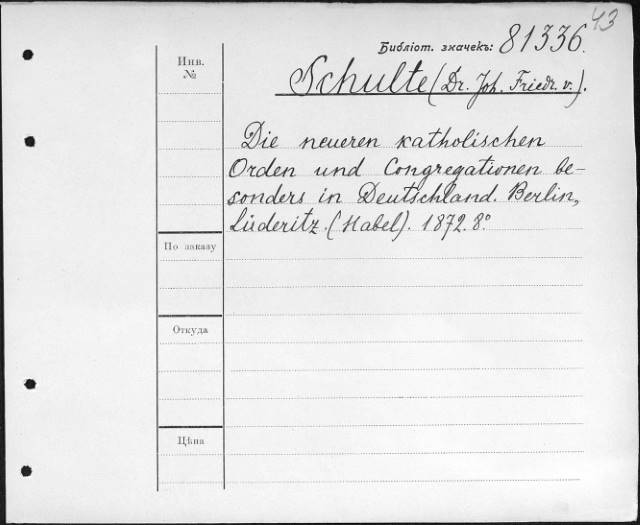 43
Библіот. значекъ: 81336.
Инв.
№
Schulte (Dr. Joh. Friedr. v.).
Die neueren katholischen
Orden und Congregationen be-
sonders in Deutschland. Berlin,
Lüderitz. (Habel). 1872. 8º.
По заказу
Откуда
Цѣна